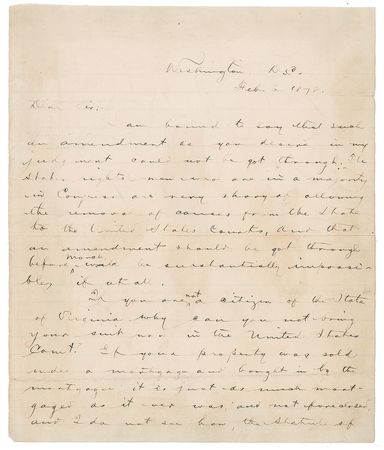 Washington, D.C.
Feb. 6, 1878.
Dear Sir:
I am bound to say that such
an amendment as you desire in my
judgment could not be got through. The
State rights men who are in a majority
in Congress are very shary of allowing
the removal of causes from the State
to the United States Courts, and that
an amendment should be got through
before March would be substantially impossi-
ble, if at all.
If you are not a citizen of the State
of Virginia why can you not bring
your suit now in the United States
Court? If your property was sold
under a mortgage and bought in by the
mortgagee it is just as much mort-
gaged as it ever was, and not foreclosed,
and I do not see how the Statute of